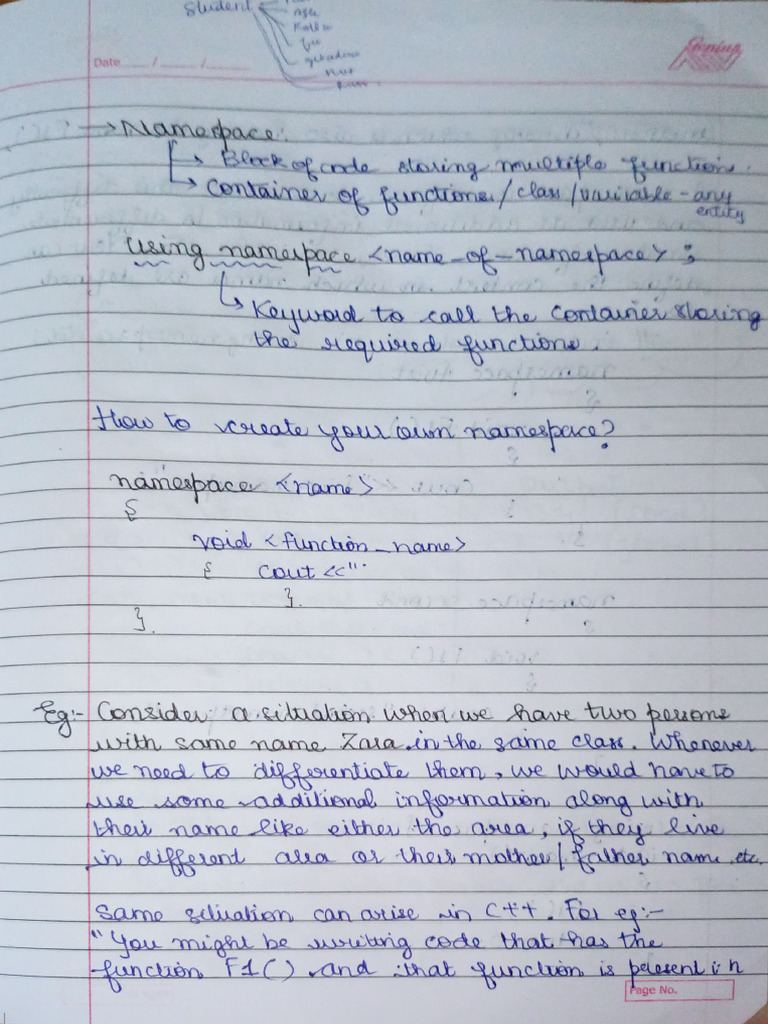 Student
Age
Date / / /
Genius
→ Namespace:
→ Block of code storing multiple function.
→ Container of functions/class/variable - any
entity
using namespace <name_of_namespace> ;
↳ Keyword to call the container storing
the required functions.
How to create your own namespace?
namespace <name>
{
void <function_name>
{ cout <<"
}.
}.
Eg:- Consider a situation when we have two persons
with same name Zara in the same class. Whenever
we need to differentiate them, we would have to
use some additional information along with
their name like either the area, if they live
in different area or their mother/father name etc.
Same situation can arise in C++. For eg:-
"You might be writing code that has the
function F1() and that function is present in
Page No.